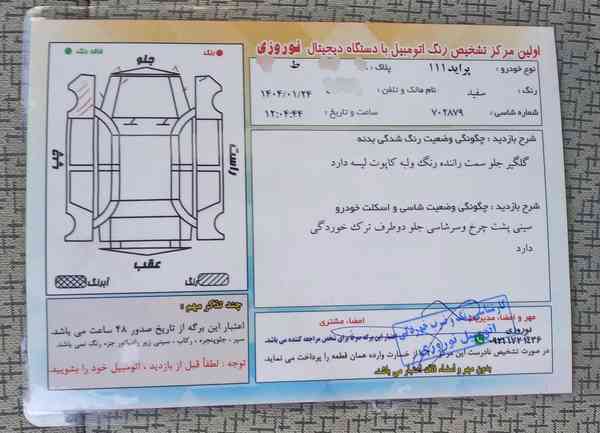 اولین مرکز تشخیص رنگ اتومبیل با دستگاه دیجیتال نوروزی
نوع خودرو: پراید۱۱۱ پلاک: ط
رنگ: سفید نام مالک و تلفن: ۱۴۰۴/۰۱/۲۴
شماره شاسی: ۷۰۲۸۷۹ ساعت و تاریخ: ۱۲:۰۴:۴۴
شرح بازدید: چگونگی وضعیت رنگ شدگی بدنه
گلگیر جلو سمت راننده رنگ ولبه کاپوت لیسه دارد
شرح بازدید: چگونگی وضعیت شاسی و اسکلت خودرو
سینی پشت چرخ وسرشاسی جلو دوطرف ترک خوردگی
دارد
مهر و امضاء مدیریت امضاء مشتری
نوروزی
کارشناسی رنگ و ضرب خوردگی
اتومبیل نوروزی
اعتبار این برگه صرفا برای شخص مراجعه کننده می باشد.
در صورت تشخیص نادرست این مرکز از خسارت وارده همان قطعه را پرداخت می نماید.
بدون مهر و امضاء فاقد اعتبار می باشد.
رنگ فاقد رنگ
جلو
چپ
راست
عقب
رنگ آبرنگ
چند تذکر مهم:
اعتبار این برگه از تاریخ صدور ۴۸ ساعت می باشد.
سپر ، جلوپنجره ، رکاب ، سینی زیر رادیاتور جزء رنگ نمی باشد.
توجه : لطفاً قبل از بازدید ، اتومبیل خود را بشویید.